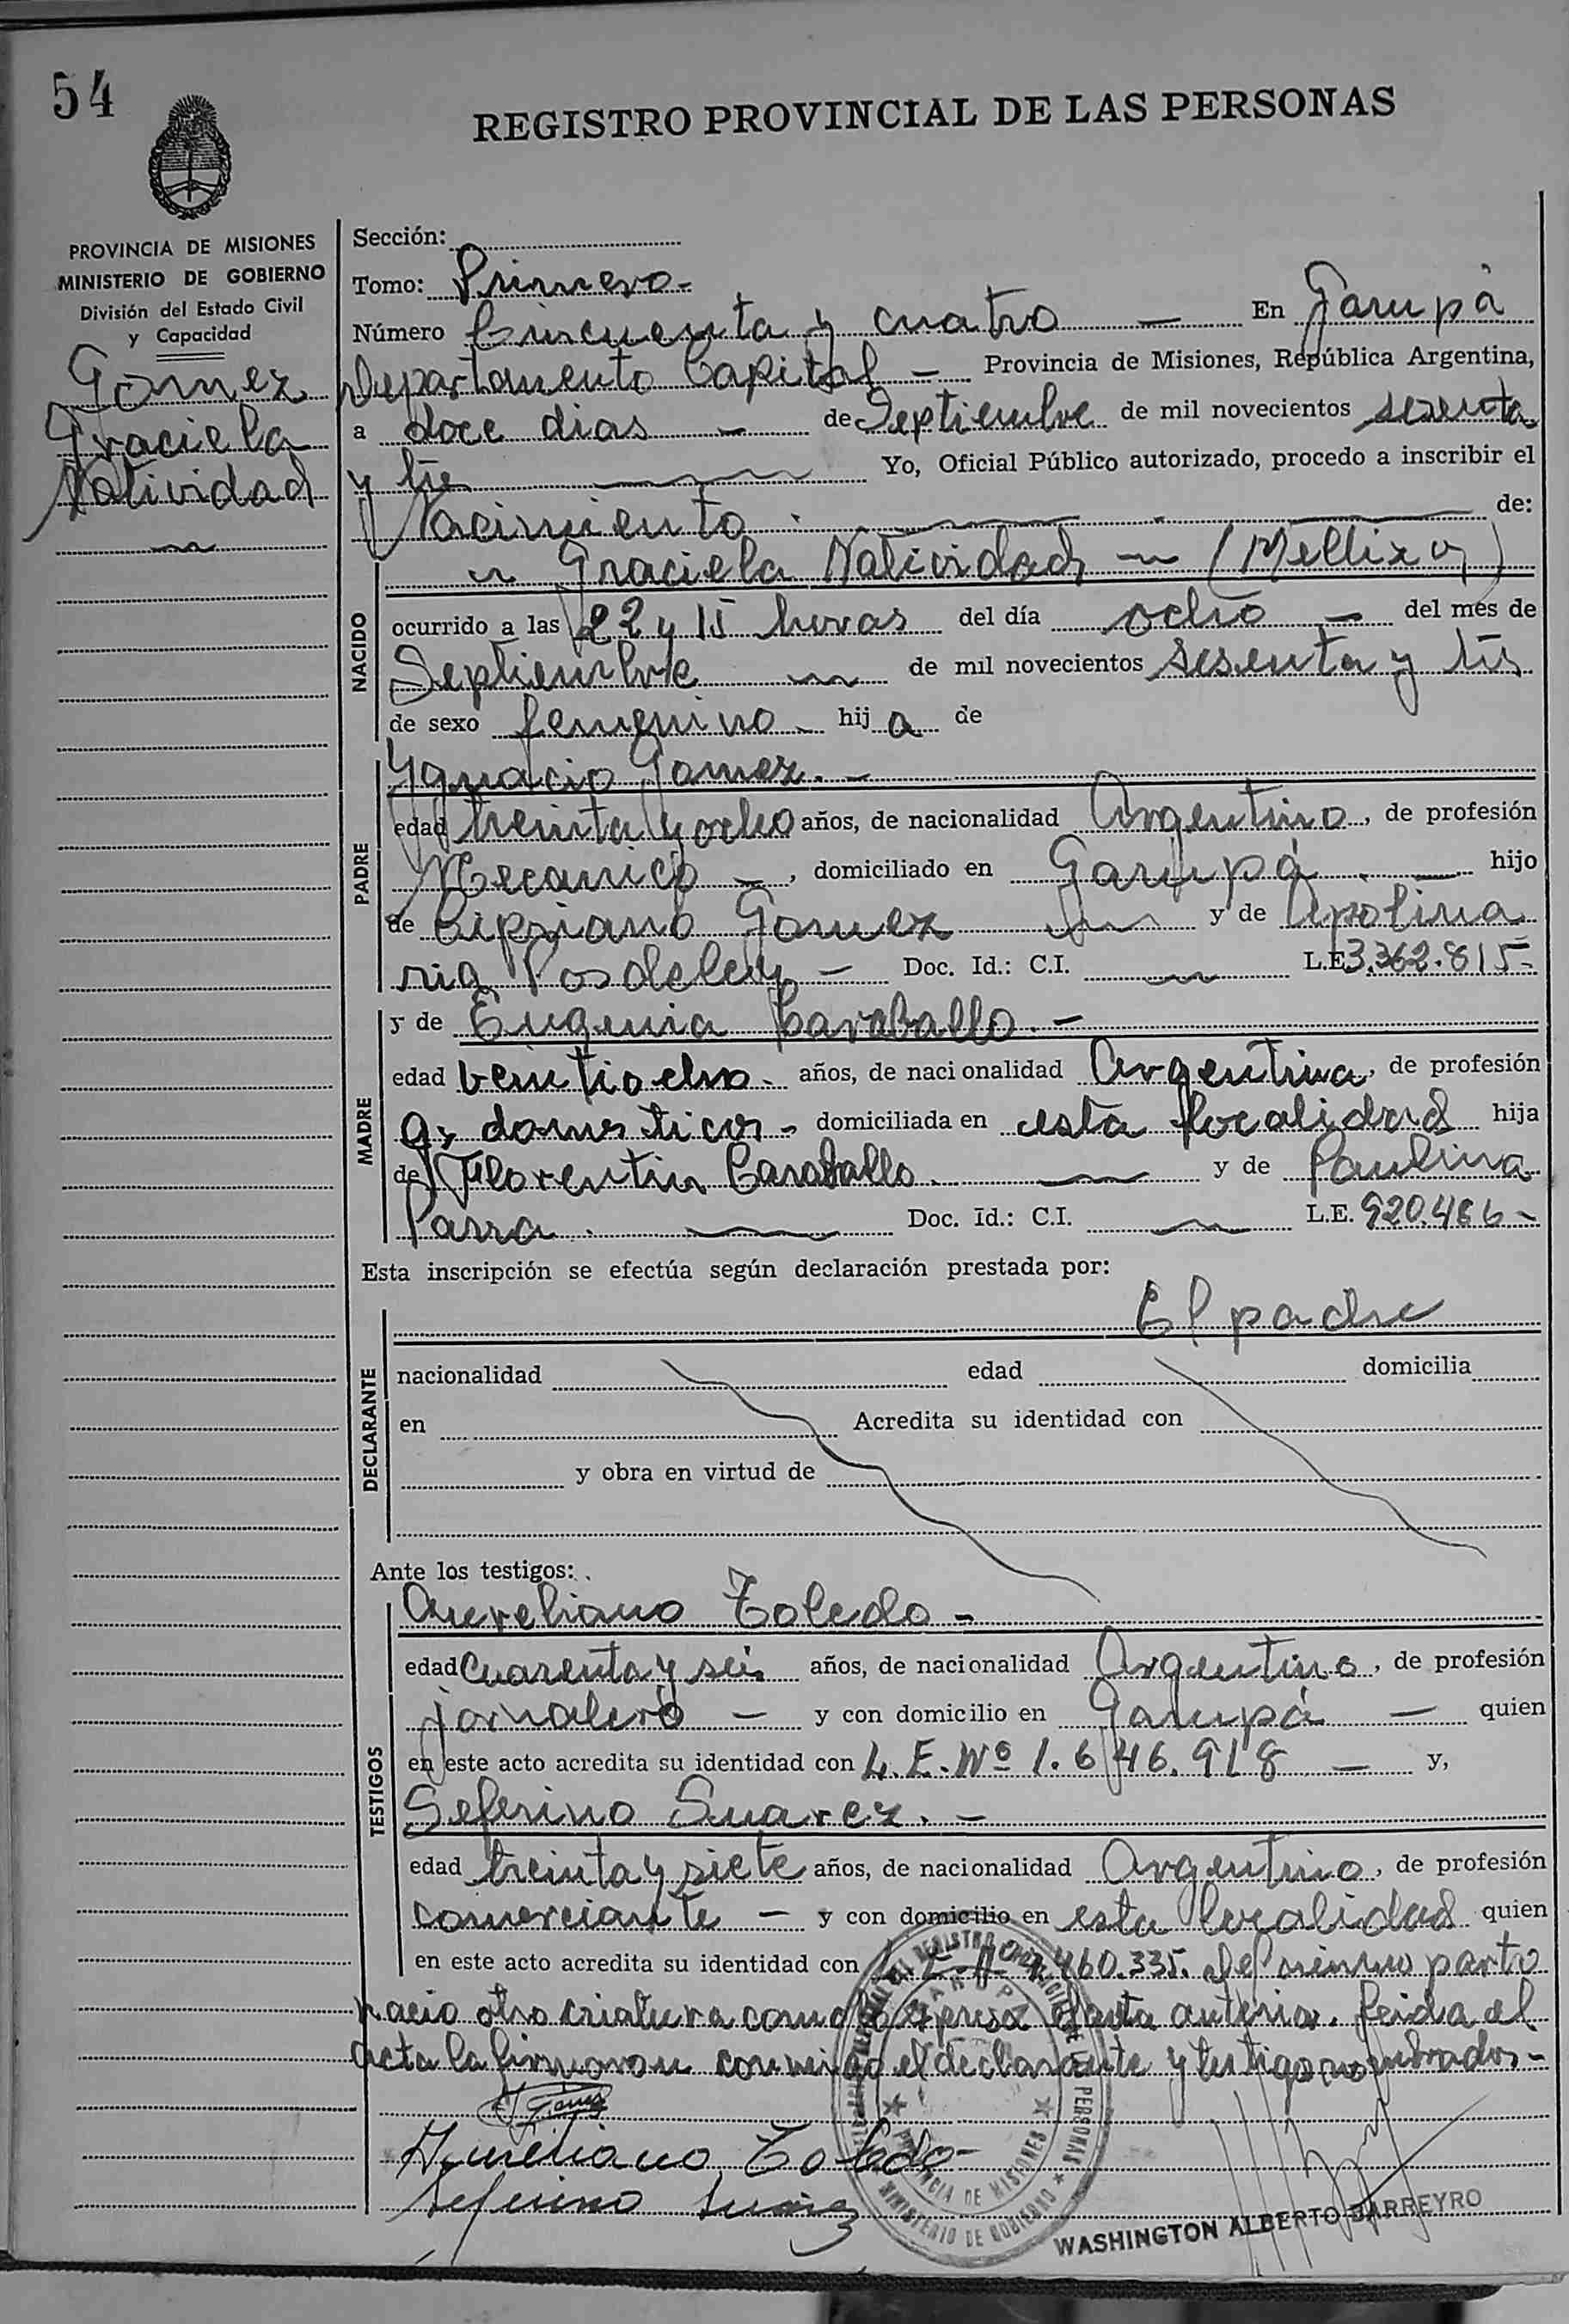 54
REGISTRO PROVINCIAL DE LAS PERSONAS
PROVINCIA DE MISIONES
MINISTERIO DE GOBIERNO
División del Estado Civil
y Capacidad
Gomez
Graciela
Natividad
Sección:
Tomo: Primero -
Número Cincuenta y cuatro — En Garupá
Departamento Capital — Provincia de Misiones, República Argentina,
a doce dias — de Septiembre de mil novecientos sesenta
y tres Yo, Oficial Público autorizado, procedo a inscribir el
Nacimiento de:
Graciela Natividad — (Melliza)
NACIDO
ocurrido a las 22 y 15 horas del día ocho — del mes de
Septiembre de mil novecientos sesenta y tres
de sexo femenino - hij a de
PADRE
Ygnacio Gomez. -
edad treinta y ocho años, de nacionalidad Argentino, de profesión
Mecanico —, domiciliado en Garupá. — hijo
de Cipriano Gomez y de Apolina
ria — Doc. Id.: C.I. L.E. 3.362.815-
MADRE
y de Eugenia Caraballo. -
edad veintiocho - años, de nacionalidad Argentina, de profesión
q, domesticos - domiciliada en esta localidad hija
de Florentin Caraballo. y de Paulina
Parra. Doc. Id.: C.I. L.E. 920.486 -
Esta inscripción se efectúa según declaración prestada por:
DECLARANTE
El padre
nacionalidad edad domicilia
en Acredita su identidad con
y obra en virtud de
Ante los testigos:
TESTIGOS
Aureliano Toledo -
edad Cuarenta y seis años, de nacionalidad Argentino, de profesión
jornalero — y con domicilio en Garupá — quien
en este acto acredita su identidad con L.E. Nº 1.646.918 — y,
Seferino Suarez. -
edad treinta y siete años, de nacionalidad Argentino, de profesión
comerciante — y con domicilio en esta localidad quien
en este acto acredita su identidad con 460.335. Del mismo parto
nacio otra criatura como lo expresa acta anterior. Leida el
acta la firmaron conmigo el declarante y testigos nombrados -
Aureliano Toledo -
Seferino Suarez
PROVINCIA DE MISIONES
MINISTERIO DE GOBIERNO
WASHINGTON ALBERTO BARREYRO